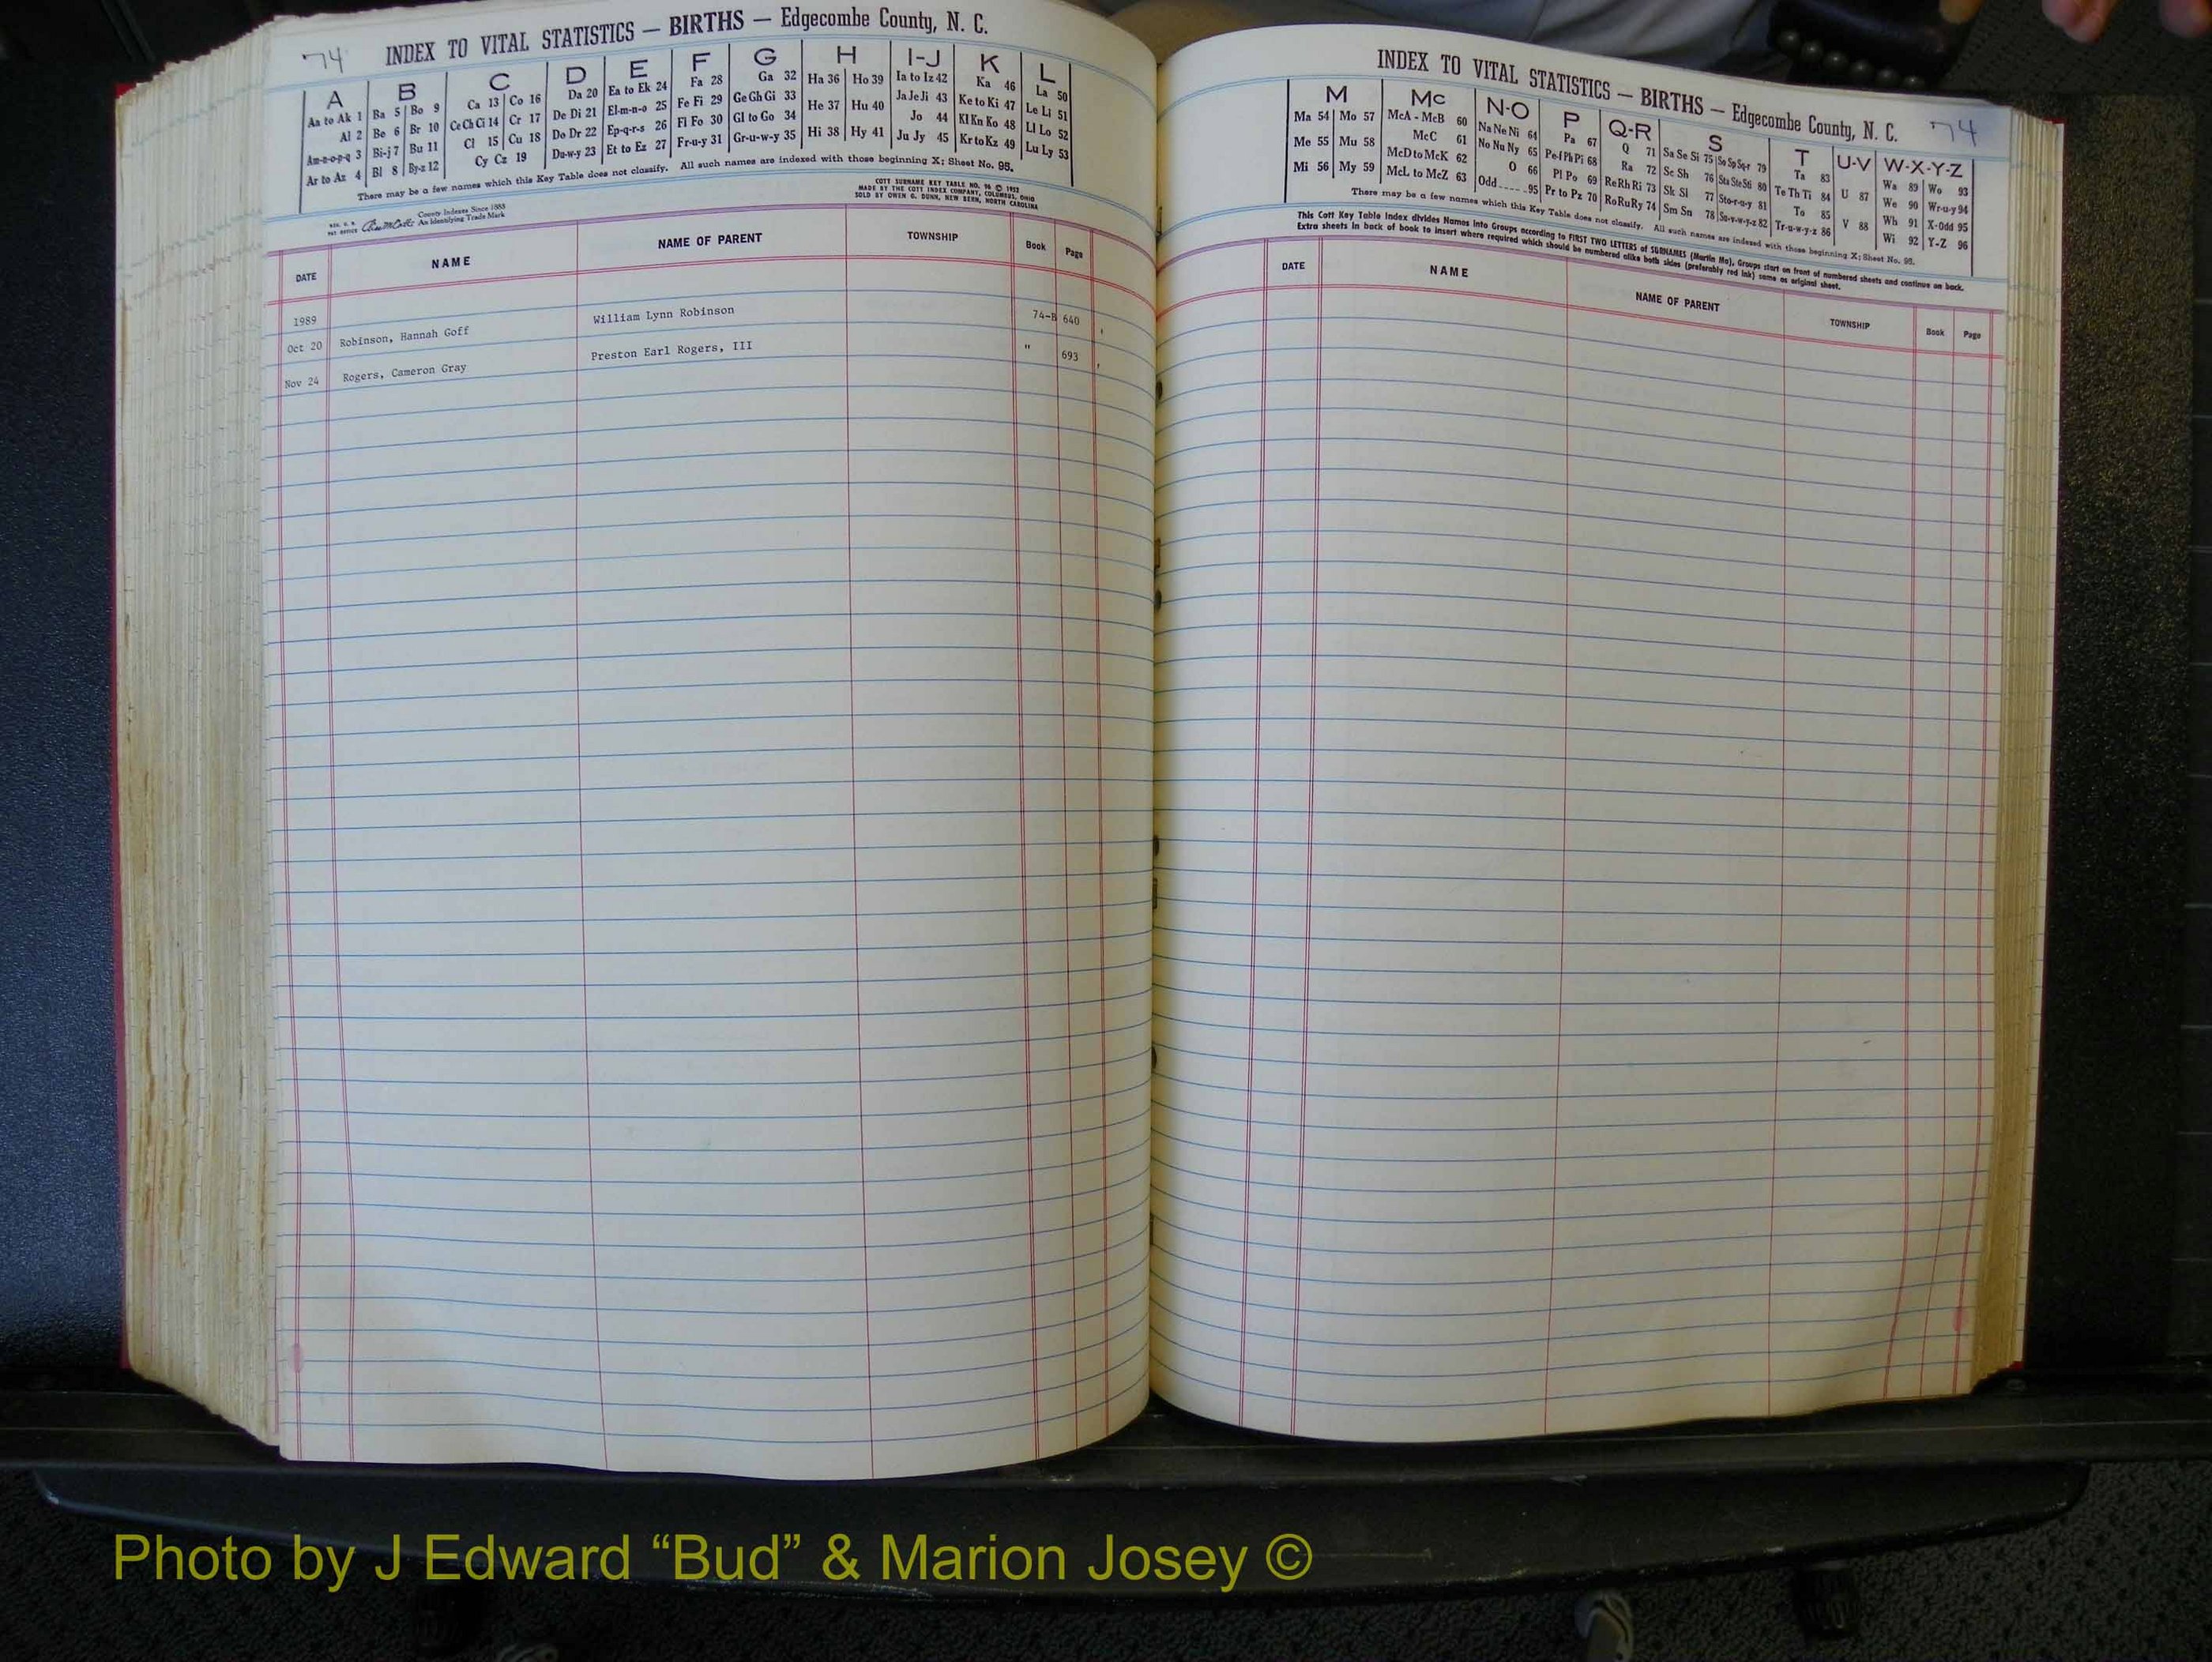 74
INDEX TO VITAL STATISTICS — BIRTHS — Edgecombe County, N. C.
A B C D E F G H I-J K L
Aa to Ak 1 Ba 5 Bo 9 Ca 13 Co 16 Da 20 Ea to Ek 24 Fa 28 Ga 32 Ha 36 Ho 39 Ia to Iz 42 Ka 46 La 50
Al 2 Be 6 Br 10 Ce Ch Ci 14 Cr 17 De Di 21 El-m-n-o 25 Fe Fi 29 Ge Gh Gi 33 He 37 Hu 40 Ja Je Ji 43 Ke to Ki 47 Le Li 51
Am-n-o-p-q 3 Bi-j 7 Bu 11 Cl 15 Cu 18 Do Dr 22 Ep-q-r-s 26 Fl Fo 30 Gl to Go 34 Hi 38 Hy 41 Jo 44 Kl Kn Ko 48 Ll Lo 52
Ar to Az 4 Bl 8 By-z 12 Cy Cz 19 Du-w-y 23 Et to Ez 27 Fr-u-y 31 Gr-u-w-y 35 Ju Jy 45 Kr to Kz 49 Lu Ly 53
There may be a few names which this Key Table does not classify. All such names are indexed with those beginning X; Sheet No. 95.
COTT SURNAME KEY TABLE NO. 96 © 1952
MADE BY THE COTT INDEX COMPANY, COLUMBUS, OHIO
SOLD BY OWEN G. DUNN, NEW BERN, NORTH CAROLINA
County Indexes Since 1888
An Identifying Trade Mark
DATE NAME NAME OF PARENT TOWNSHIP Book Page
1989
Oct 20 Robinson, Hannah Goff William Lynn Robinson 74-B 640
Nov 24 Rogers, Cameron Gray Preston Earl Rogers, III " 693
INDEX TO VITAL STATISTICS — BIRTHS — Edgecombe County, N. C. 74
M Mc N-O P Q-R S T U-V W-X-Y-Z
Ma 54 Mo 57 McA - McB 60 Na Ne Ni 64 Pa 67 Q 71 Sa Se Si 75 So Sp Sq-r 79 Ta 83 U 87 Wa 89 Wo 93
Me 55 Mu 58 McC 61 No Nu Ny 65 Pe-f Ph Pi 68 Ra 72 Sc Sh 76 Sta Ste Sti 80 Te Th Ti 84 V 88 We 90 Wr-u-y 94
Mi 56 My 59 McD to McK 62 O 66 Pl Po 69 Re Rh Ri 73 Sk Sl 77 Sto-r-u-y 81 To 85 Wh 91 X-Odd 95
McL to McZ 63 Odd 95 Pr to Pz 70 Ro Ru Ry 74 Sm Sn 78 Su-v-w-y-z 82 Tr-u-w-y-z 86 Wi 92 Y-Z 96
There may be a few names which this Key Table does not classify. All such names are indexed with those beginning X; Sheet No. 95.
This Cott Key Table Index divides Names into Groups according to FIRST TWO LETTERS of SURNAMES (Martin Ma), Groups start on front of numbered sheets and continue on back.
Extra sheets in back of book to insert where required which should be numbered alike both sides (preferably red ink) same as original sheet.
DATE NAME NAME OF PARENT TOWNSHIP Book Page
Photo by J Edward “Bud” & Marion Josey ©